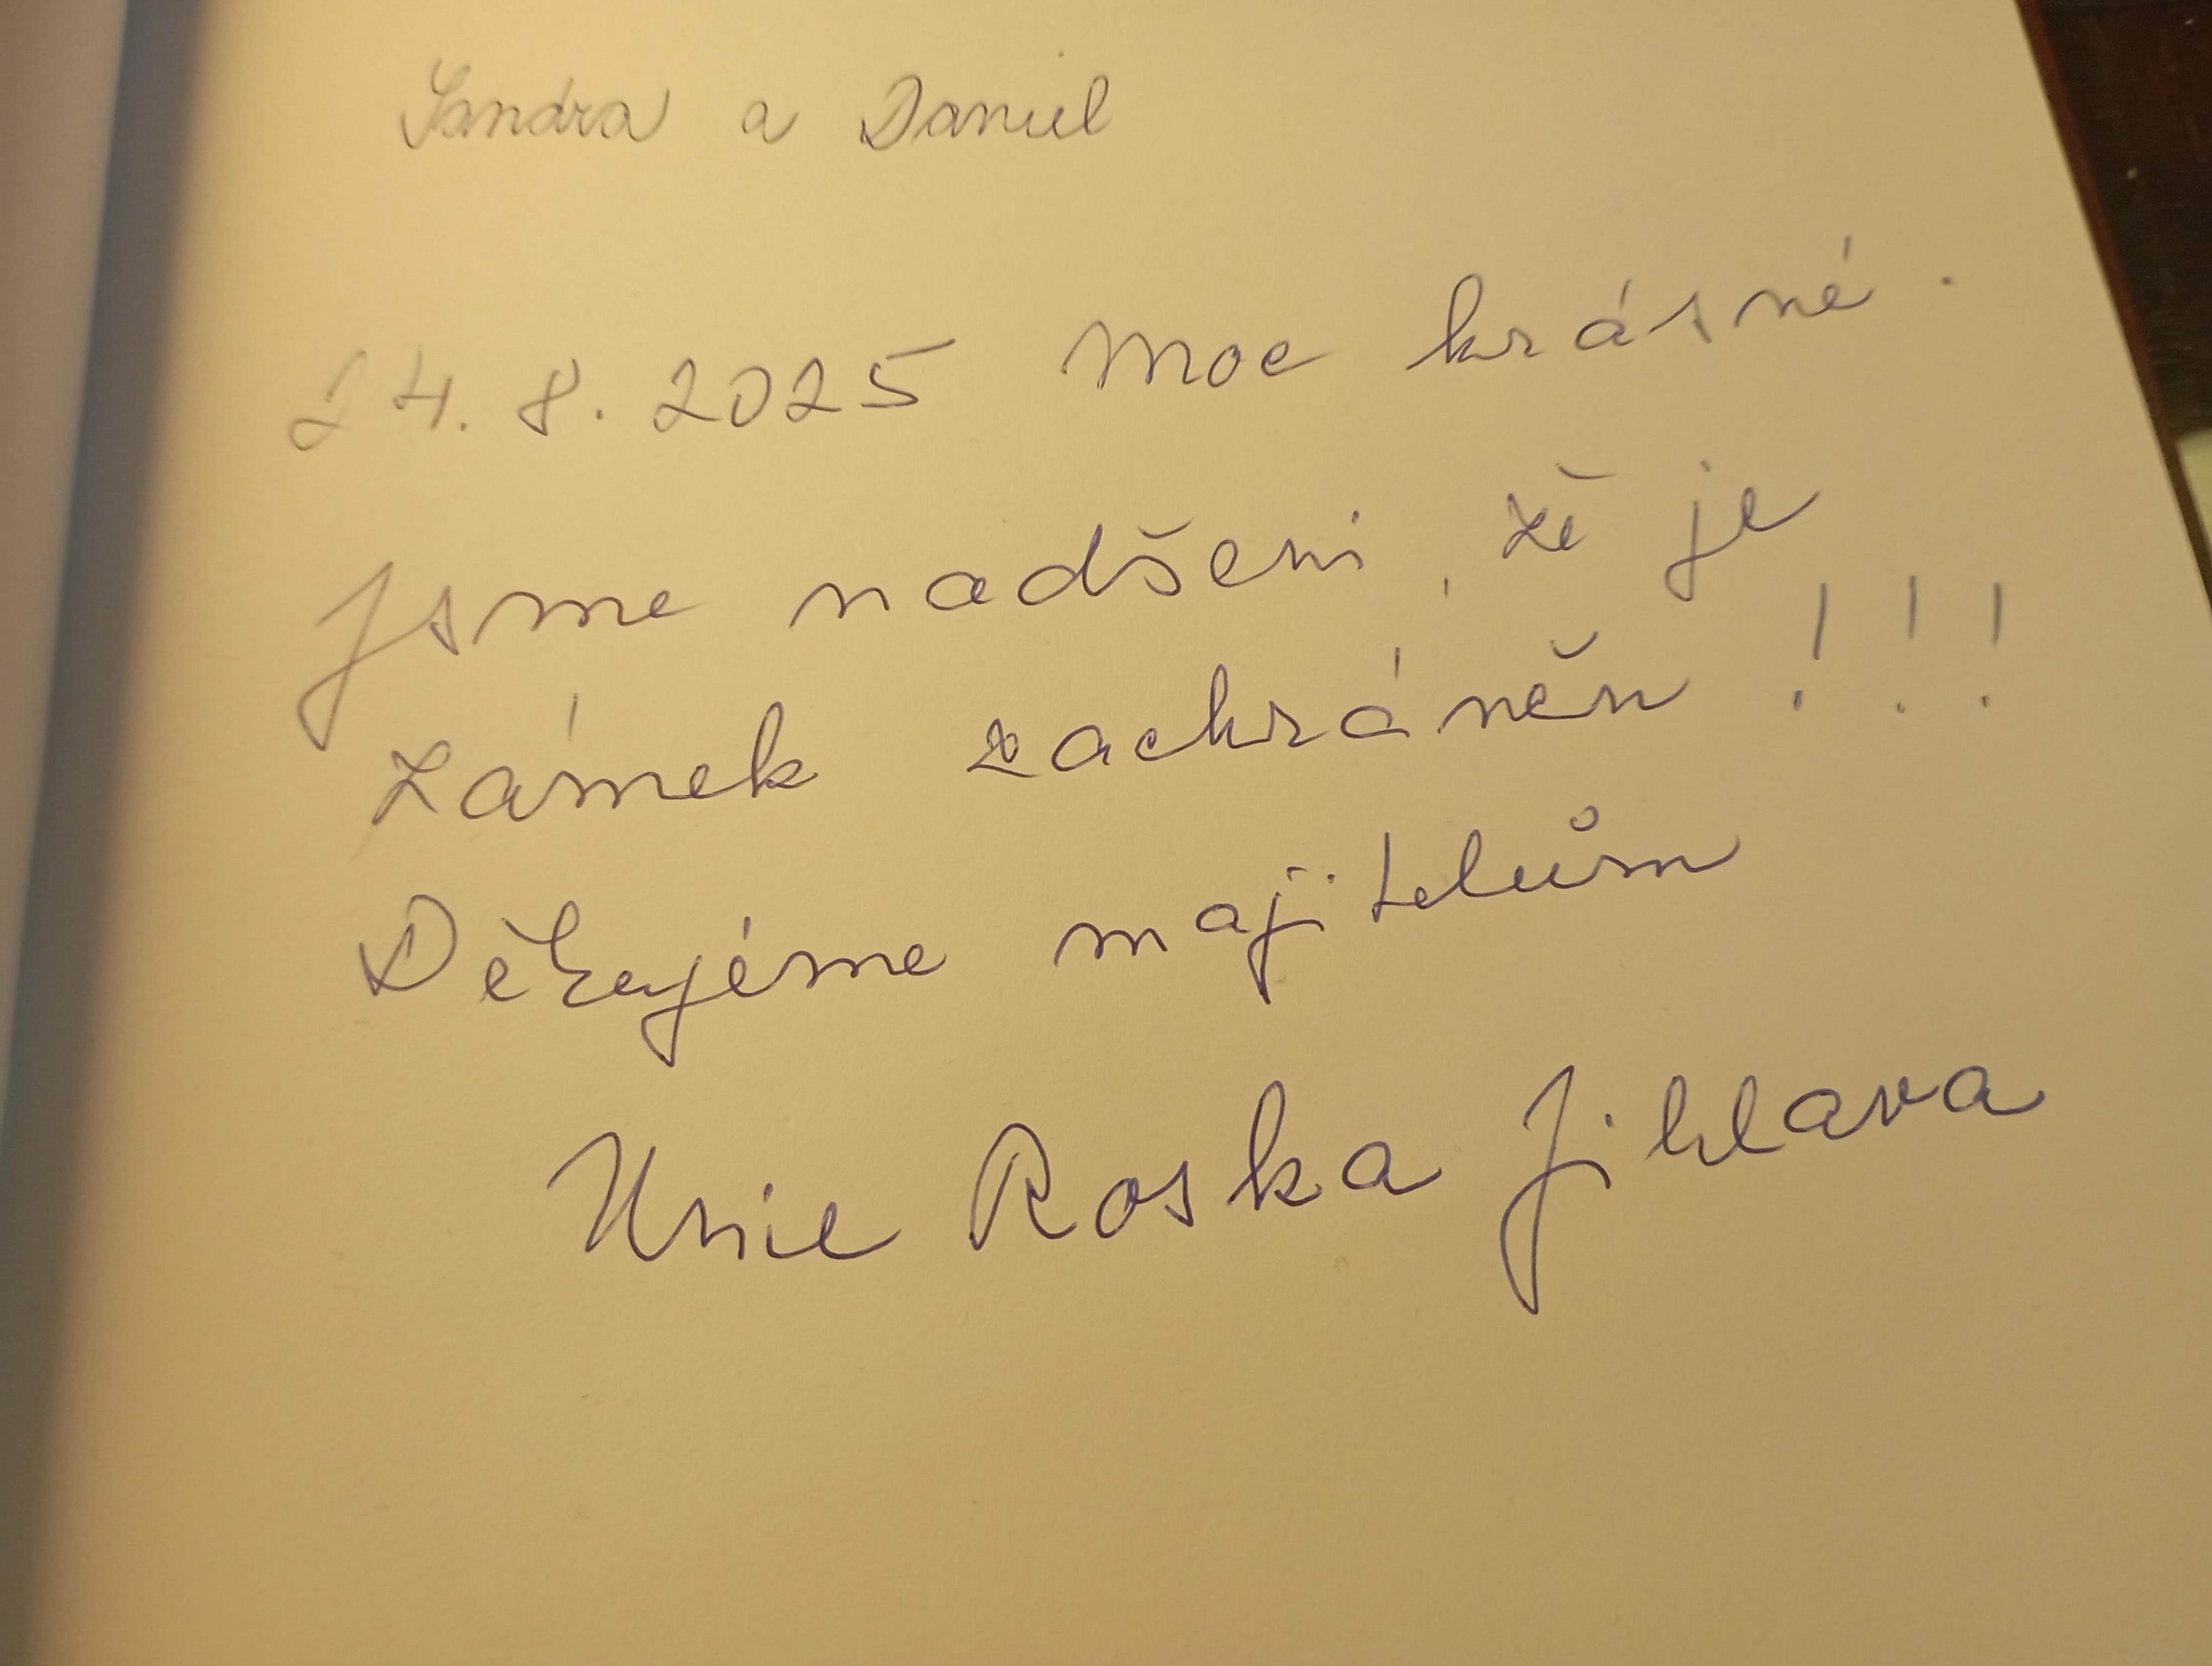 Sandra a Daniel
24. 8. 2025 Moc krásné.
Jsme nadšeni, že je
zámek zachráněn!!!
Děkujéme majitelům
Unie Roska Jihlava